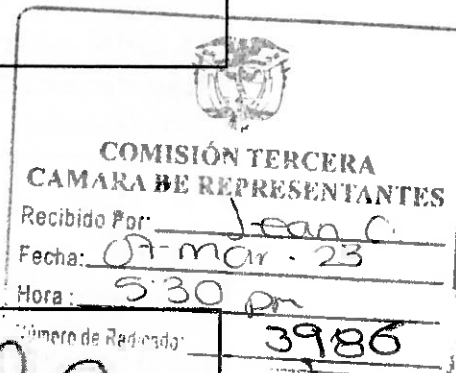 COMISIÓN TERCERA
CAMARA DE REPRESENTANTES
Recibido Por: Jean C.
Fecha: 07-mar. 23
Hora: 5:30 pm
Número de Radicado: 3986